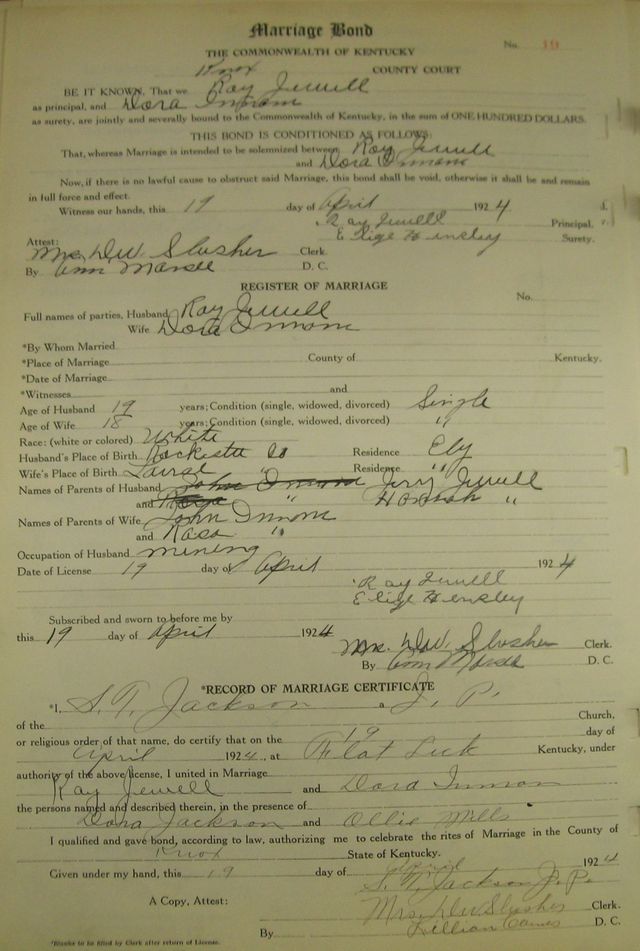 Marriage Bond
THE COMMONWEALTH OF KENTUCKY No. 191
Knox COUNTY COURT
BE IT KNOWN, That we Ray Jewell
as principal, and Dora Inmon
as surety, are jointly and severally bound to the Commonwealth of Kentucky, in the sum of ONE HUNDRED DOLLARS.
THIS BOND IS CONDITIONED AS FOLLOWS:
That, whereas Marriage is intended to be solemnized between Ray Jewell
and Dora Inmon
Now, if there is no lawful cause to obstruct said Marriage, this bond shall be void, otherwise it shall be and remain
in full force and effect.
Witness our hands, this 19 day of April 1924
Ray Jewell Principal.
Elige Hensley Surety.
Attest:
Mrs. D.W. Slusher Clerk
By Ann D. C.
REGISTER OF MARRIAGE
No.
Full names of parties, Husband Ray Jewell
Wife Dora Inmon
*By Whom Married
*Place of Marriage County of Kentucky.
*Date of Marriage
*Witnesses and
Age of Husband 19 years; Condition (single, widowed, divorced) Single
Age of Wife 18 years; Condition (single, widowed, divorced) "
Race: (white or colored) White
Husband's Place of Birth Co Residence Ely
Wife's Place of Birth " Residence "
Names of Parents of Husband John Inmon Jerry Jewell
and " Hannah "
Names of Parents of Wife John Inmon
and Rosa "
Occupation of Husband mining
Date of License 19 day of April 1924
Ray Jewell
Elige Hensley
Subscribed and sworn to before me by
this 19 day of April 1924
Mrs. D.W. Slusher Clerk.
By Ann D. C.
*RECORD OF MARRIAGE CERTIFICATE
*I, S. T. Jackson a J. P.
of the Church,
or religious order of that name, do certify that on the 19 day of
April 1924, at Flat Lick Kentucky, under
authority of the above license, I united in Marriage
Ray Jewell and Dora Inmon
the persons named and described therein, in the presence of
Dora Jackson and Ollie Mills
I qualified and gave bond, according to law, authorizing me to celebrate the rites of Marriage in the County of
Knox State of Kentucky.
Given under my hand, this 19 day of April 1924
S. T. Jackson J. P.
A Copy, Attest: Mrs. D.W. Slusher Clerk.
By Lillian D. C.
*Blanks to be filled by Clerk after return of License.